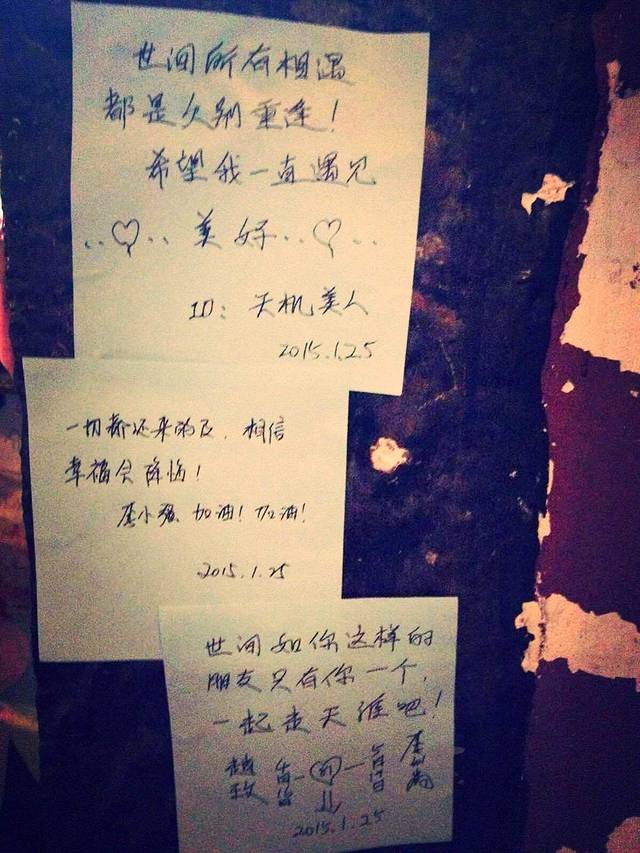 世间所有相遇
都是久别重逢！
希望我一直遇见
..♡..美好..♡..
ID：天机美人
2015.1.25
一切都还来的及，相信
幸福会降临！
李小强 加油！加油！
2015.1.25
世间如你这样的
朋友只有你一个，
一起走天涯吧！
2015.1.25